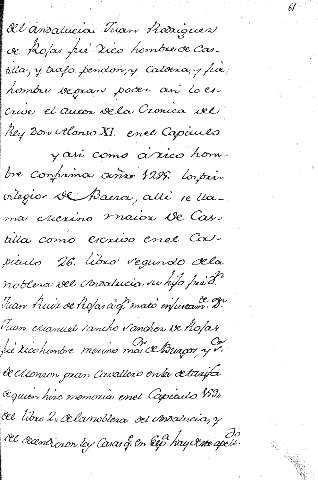 61
del andalucia Juan Rodriguez
de Rojas fué Rico hombre de Cas-
tilla, y trajo pendon, y Caldera, y fué
hombre de gran poder asi lo es-
crive el autor de la Cronica del
Rey Don Alonso XI. en el Capitulo
y asi como á rico hom-
bre confirma años 1295. los pri-
vilegios de Baena, alli se lla-
ma merino maior de Cas-
tilla como escrivo en el Ca-
pitulo 26. libro segundo de la
nobleza del Andalucia su hijo fué Dⁿ
Juan Ruiz de Rojas á qⁿ mató Dⁿ
Juan manuel sancho sanchez de Rojas
fué Rico hombre merino mᵒʳ de Burgos y
de Monzon gran Cavallero en la de tarifa
de quien hize memoria en el Capitulo
del libro 2. de la nobleza del Andalucia, y
del decienden oy Casas qᵉ en Espᵃ hay de este apellᵈᵒ